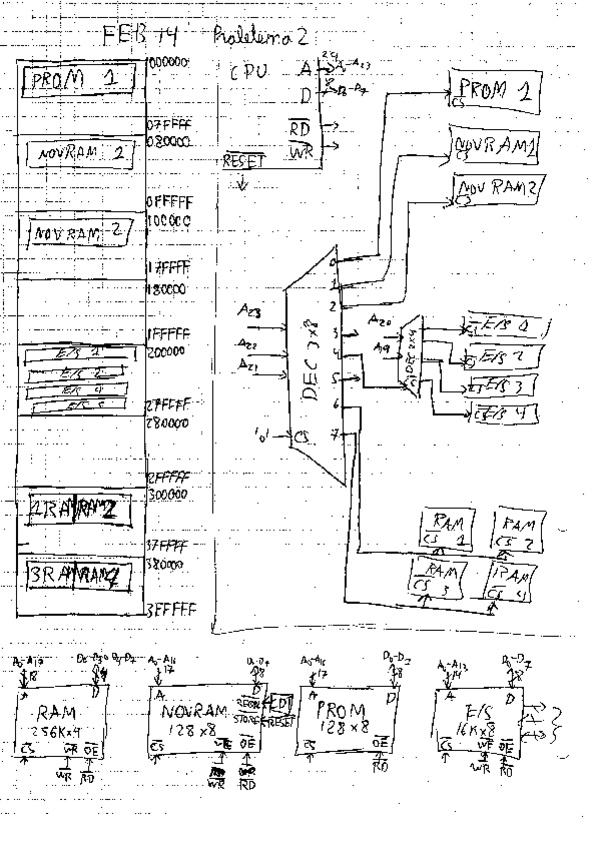 FEB 14 Problema 2
000000
PROM 1
07FFFF
080000
NOVRAM 1
0FFFFF
100000
NOVRAM 2
17FFFF
180000
1FFFFF
200000
E/S 1
E/S 2
E/S 3
27FFFF
280000
2FFFFF
300000
1RAM RAM2
37FFFF
380000
3RAM RAM4
3FFFFF
CPU A 24 A0-A23
D 8 D0-D7
RD
WR
RESET
PROM 1
CS
NOVRAM1
CS
NOVRAM2
CS
DEC 3x8
0
1
2
3
4
5
6
7
A23
A22
A21
'0' CS
A20
A19
DEC 2x4
CS
CS E/S 1
CS E/S 2
CS E/S 3
CS E/S 4
RAM
CS 1
RAM
CS 2
RAM
CS 3
RAM
CS 4
A0-A17
18
D0-D3 o D4-D7
4
A D
RAM
256Kx4
CS WR OE
WR RD
A0-A16
17
D0-D7
8
A D
NOVRAM
128x8
STORE RESET
CS WE OE
WR RD
A0-A16
17
D0-D7
8
A D
PROM
128x8
CS OE
RD
A0-A13
14
D0-D7
8
A D
E/S
16Kx8
CS WE OE
WR RD